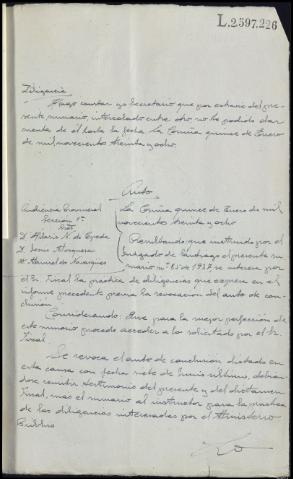 L.2597.226
Diligencia
Hago constar yo Secretario que por extravio del pre-
sente sumario, intercalado entre otro no he podido dar
cuenta de él hasta la fecha La Coruña quince de Enero
de mil novecientos treinta y ocho.
Auto
Audiencia Provincial
Sección 1ª
La Coruña quince de Enero de mil
novecientos treinta y ocho
D Hilario N. de Cepeda
Resultando que instruido por el
Juzgado de Santiago el presente su-
mario nº 85 de 1937 se interesa por
D Manuel de
el Sr. Fiscal la práctica de diligencias que expresa en el
informe precedente previa la revocación del auto de con-
clusión.
Considerando: Que para la mayor perfección de
este sumario procede acceder a lo solicitado por el Sr
Fiscal.
Se revoca el auto de conclusión dictado en
esta causa con fecha siete de Junio último, debien-
dose remitir testimonio del presente y del dictamen
Fiscal, mas el sumario al instructor para la práctica
de las diligencias interesadas por el Ministerio
Público